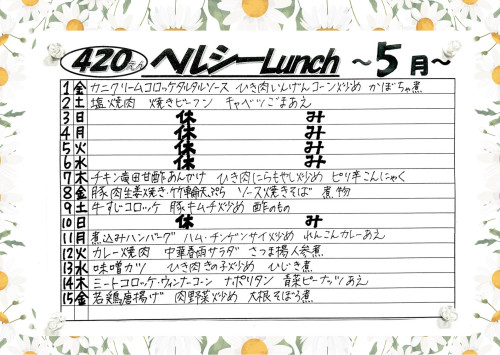 420えん ヘルシーLunch ～5月～
1 金 カニクリームコロッケタルタルソース ひき肉いんげんコーン炒め かぼちゃ煮
2 土 塩焼肉 焼きビーフン キャベツごまあえ
3 日 休み
4 月 休み
5 火 休み
6 水 休み
7 木 チキン竜田甘酢あんかけ ひき肉にらもやし炒め ピリ辛こんにゃく
8 金 豚肉生姜焼き・竹輪天ぷら ソース焼きそば 煮物
9 土 牛すじコロッケ 豚キムチ炒め 酢のもの
10 日 休み
11 月 煮込みハンバーグ ハム・チンゲンサイ炒め れんこんカレーあえ
12 火 カレー焼肉 中華春雨サラダ さつま揚人参煮
13 水 味噌カツ ひき肉きの子炒め ひじき煮
14 木 ミートコロッケ・ウィンナーコーン ナポリタン 青菜ピーナッツあえ
15 金 若鶏唐揚げ 肉野菜炒め 大根そぼろ煮